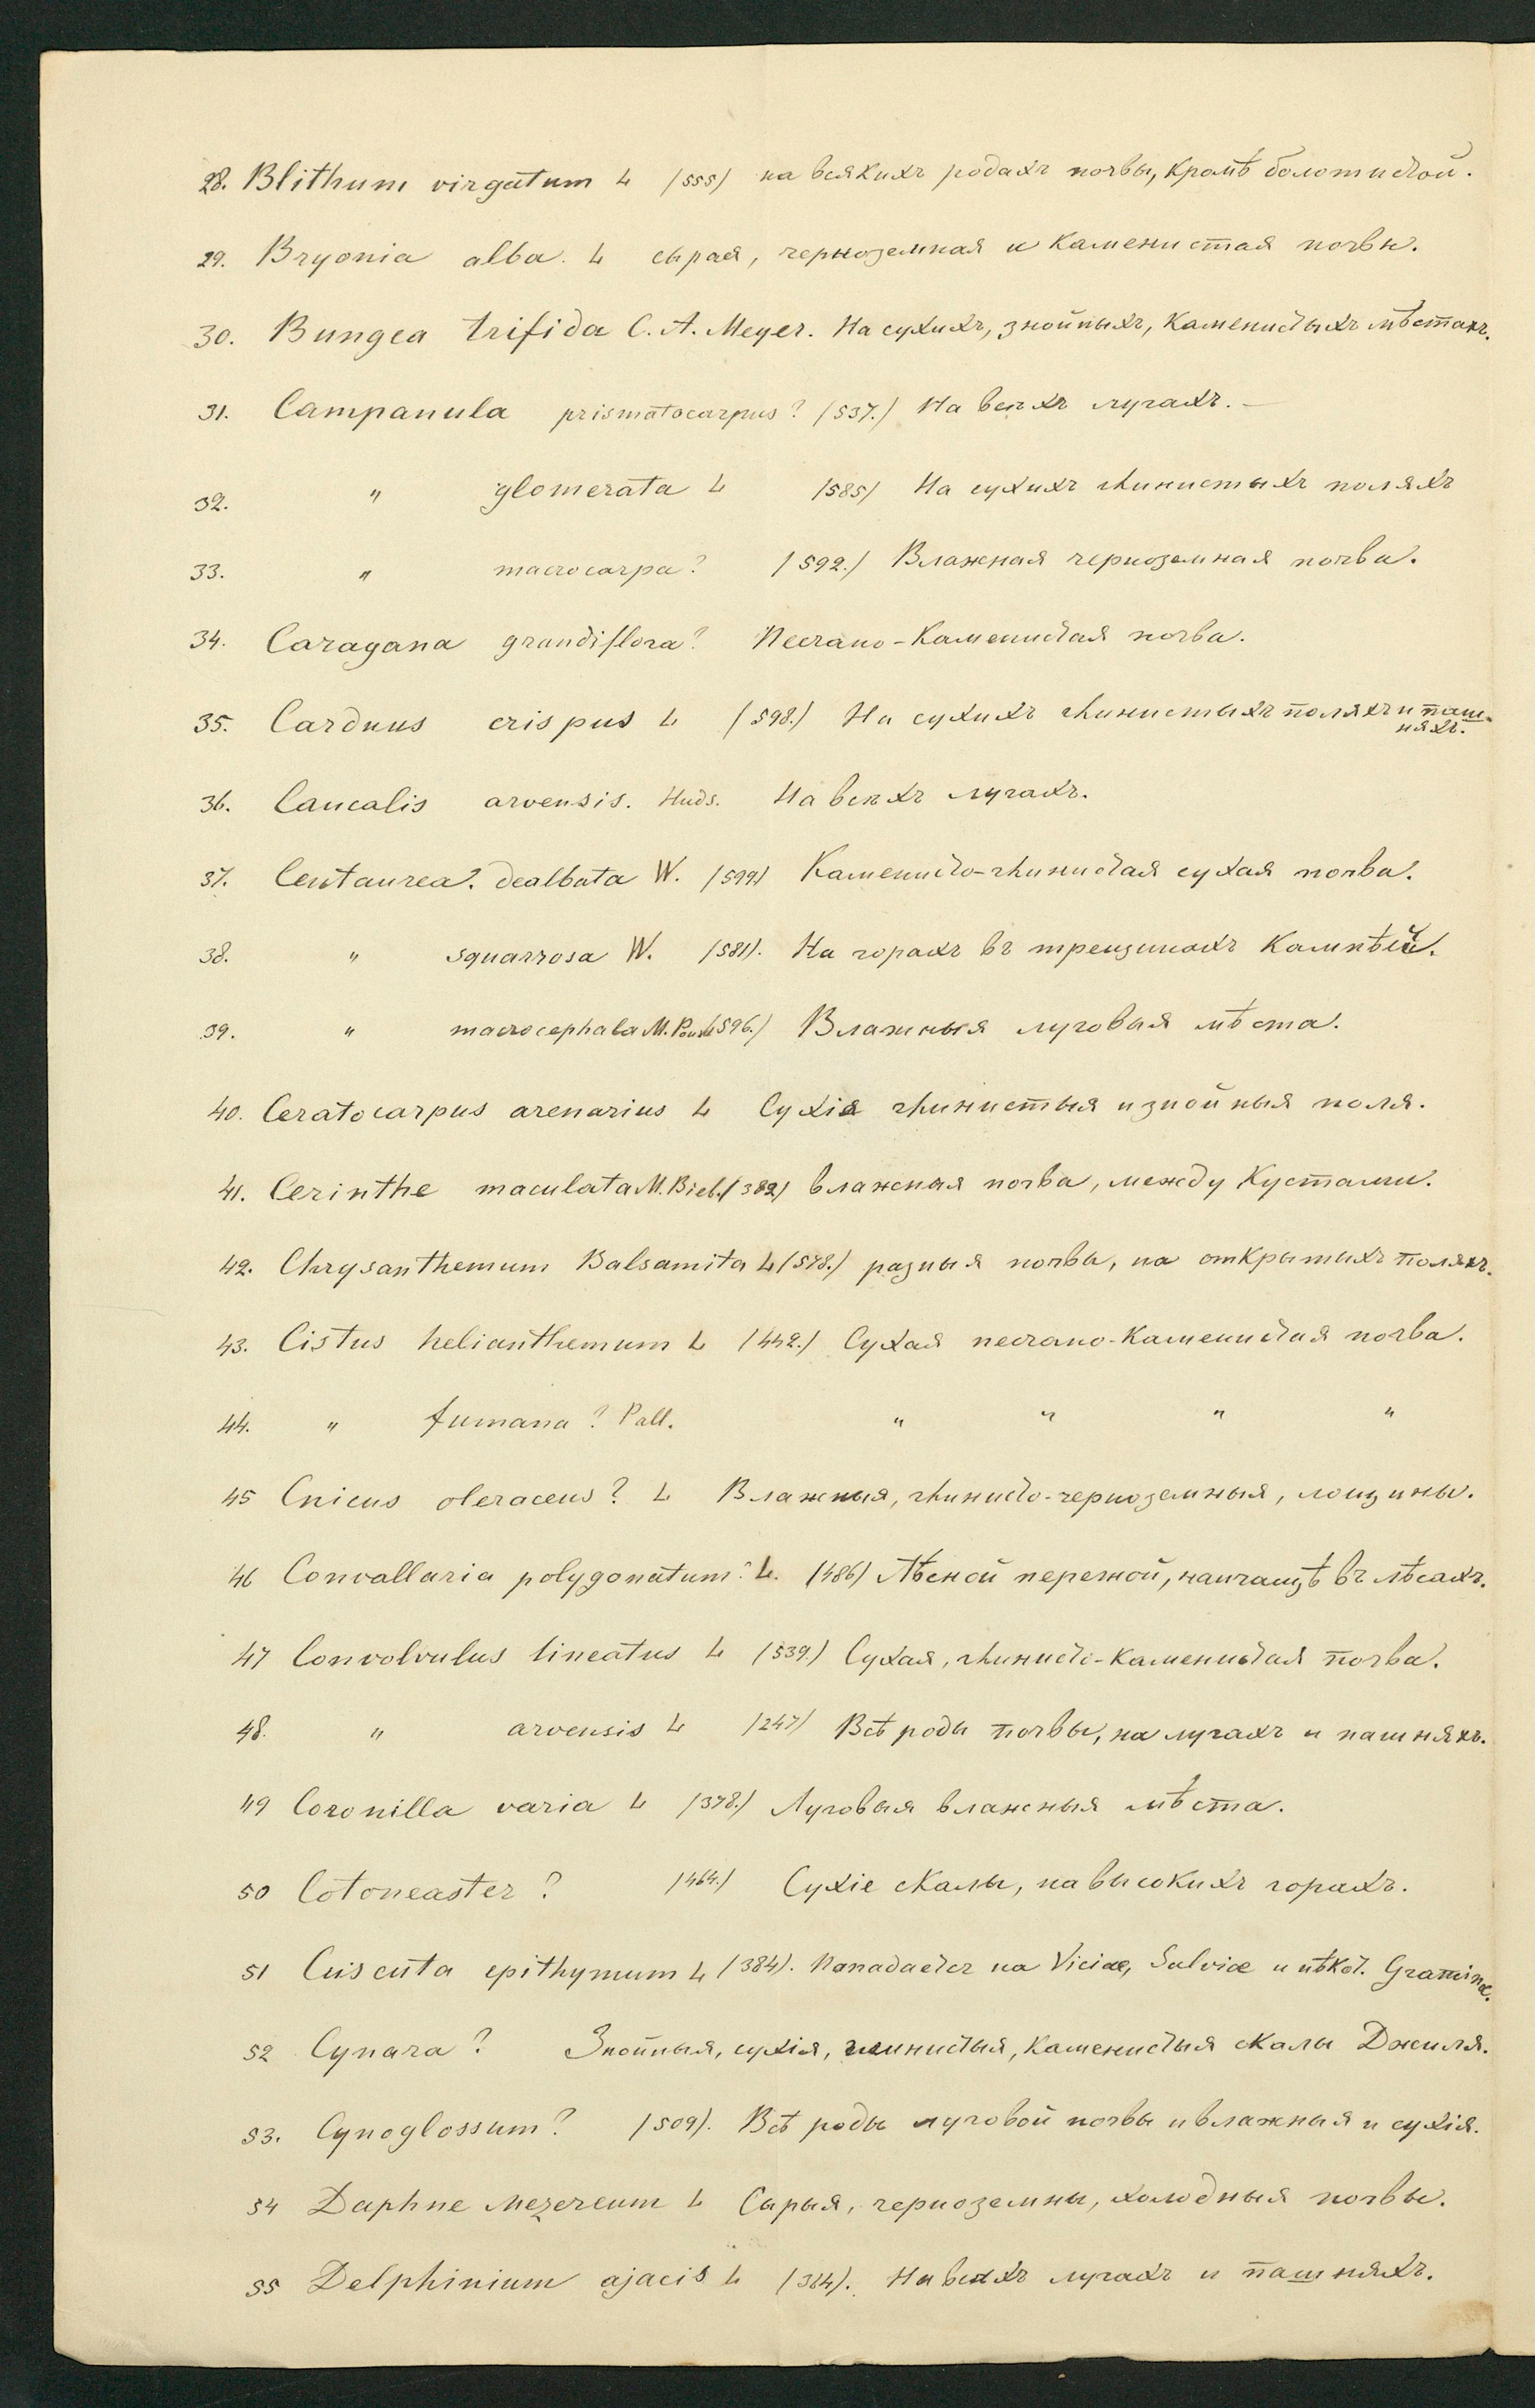 28. Blithum virgatum L (555) на всякихъ родахъ почвы, кромѣ болотистой.
29. Bryonia alba. L сырая, черноземная и каменистая почвы.
30. Bungea trifida C. A. Meyer. На сухихъ, знойныхъ, каменистыхъ мѣстахъ.
31. Campanula prismatocarpus? (537.) На всѣхъ лугахъ. —
32. " glomerata L (585) На сухихъ глинистыхъ поляхъ
33. " macrocarpa? (592.) Влажная черноземная почва.
34. Caragana grandiflora? Песчано-каменистая почва.
35. Carduus crispus L (598.) На сухихъ глинистыхъ поляхъ и паш-
няхъ.
36. Caucalis arvensis. Huds. На всѣхъ лугахъ.
37. Centaurea. dealbata W. (599) Каменисто-глинистая сухая почва.
38. " squarrosa W. (581). На горахъ въ трещинахъ камнѣй.
39. " macrocephala M. (596.) Влажныя луговыя мѣста.
40. Ceratocarpus arenarius L Сухія глинистыя и знойныя поля.
41. Cerinthe maculata M. Bieb. (382) влажная почва, между кустами.
42. Chrysanthemum Balsamita L (578.) разныя почвы, на открытыхъ поляхъ.
43. Cistus helianthemum L (442.) Сухая песчано-каменистая почва.
44. " fumana? Pall. " " " "
45 Cnicus oleraceus? L Влажныя, глинисто-черноземныя, лощины.
46 Convallaria polygonatum? L. (486) Лѣсной перегной, начащѣ въ лѣсахъ.
47 Convolvulus lineatus L (539.) Сухая, глинисто-каменистая почва.
48. " arvensis L (247) Всѣ роды почвы, на лугахъ и пашняхъ.
49 Coronilla varia L (378.) Луговыя влажныя мѣста.
50 Cotoneaster? (464.) Сухіе скалы, на высокихъ горахъ.
51 Cuscuta epithymum L (384). Нападаетъ на Viciae, Salviae и нѣкот. Graminae.
52 Cynara? Знойныя, сухія, глинистыя, каменистыя скалы Джиля.
53. Cynoglossum? (509). Всѣ роды луговой почвы и влажныя и сухія.
54 Daphne Mezereum L Сырыя, черноземны, холодныя почвы.
55 Delphinium ajacis L (314). На всѣхъ лугахъ и пашняхъ.